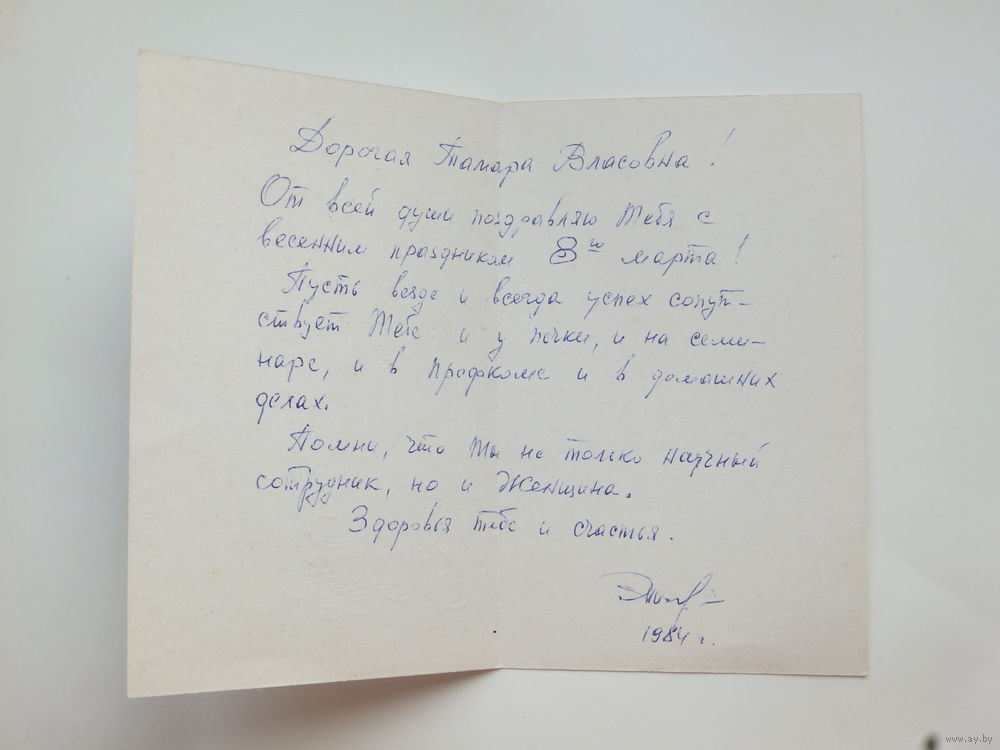 Дорогая Тамара Власовна!
От всей души поздравляю Тебя с
весенним праздником 8ю марта!
Пусть везде и всегда успех сопут-
ствует Тебе и у печки, и на семи-
наре, и в профкоме и в домашних
делах.
Помни, что Ты не только научный
сотрудник, но и Женщина.
Здоровья тебе и счастья.
1984 г.
www.ay.by